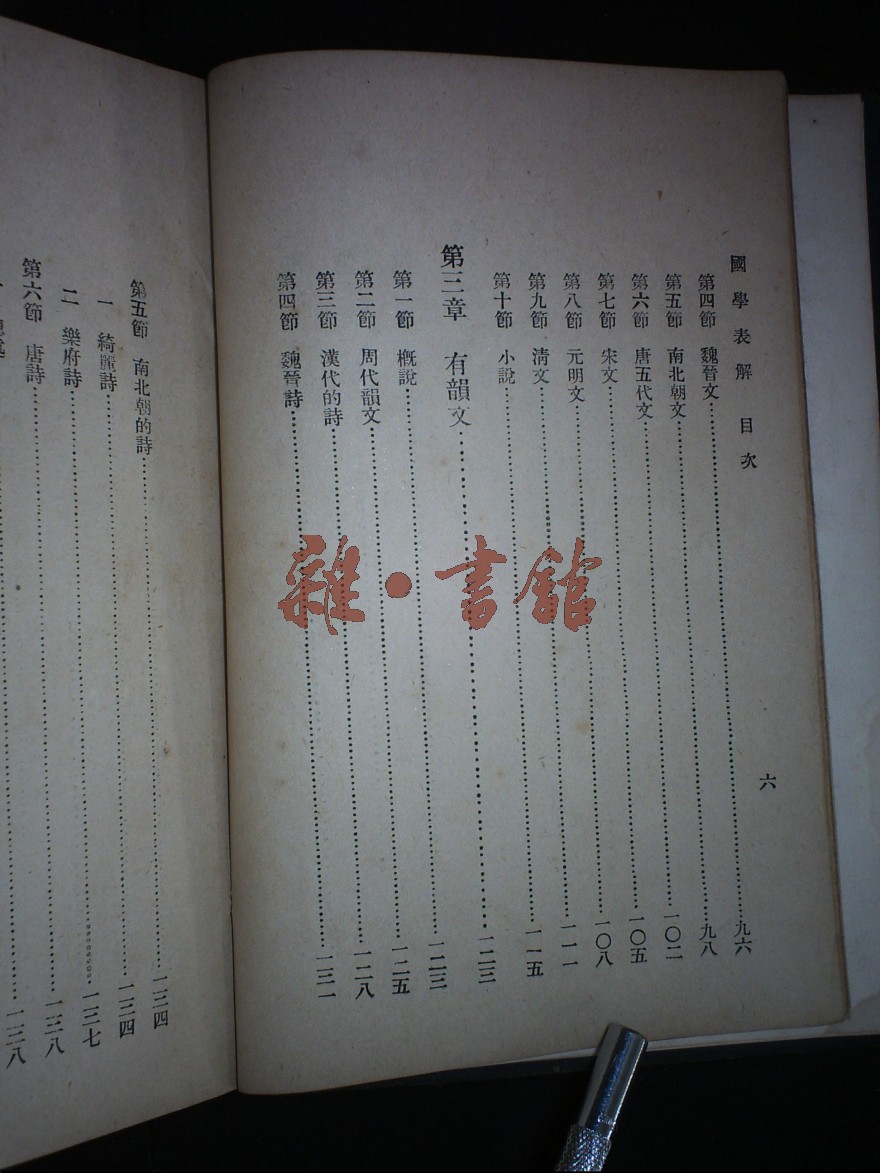 國學表解 目次
六
第四節 魏晉文……九六
第五節 南北朝文……九八
第六節 唐五代文……一〇二
第七節 宋文……一〇五
第八節 元明文……一〇八
第九節 清文……一一一
第十節 小說……一一五
第三章 有韻文……一二三
第一節 概說……一二三
第二節 周代韻文……一二五
第三節 漢代的詩……一二八
第四節 魏晉詩……一三一
第五節 南北朝的詩……一三四
一 綺麗詩……一三四
二 樂府詩……一三七
第六節 唐詩……一三八
……一三八
雜·書館